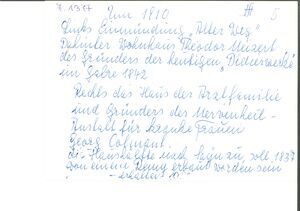 7. 1377
Juni 1910 5
Links Einmündung "Alter Weg"
Dahinter Wohnhaus Theodor Neizert
des Gründers der heutigen "Didierwerke"
im Jahre 1872
Rechts das Haus der Arztfamilie
und Gründers der Nervenheil-
Anstalt für kranke Frauen
Georg Colmant.
Haushälfte nach Sayn zu, soll 1837
von einem Remy erbaut worden sein